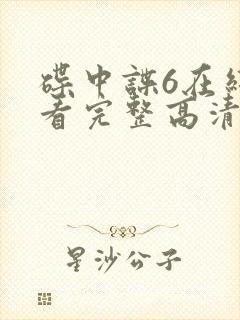 碟中諜6在
看完整高清
星沙公子